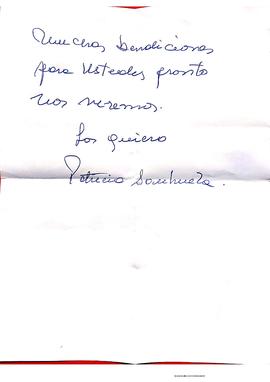 Muchas bendiciones
para Ustedes pronto
nos veremos.
Los quiero
Patricia Sanhueza.